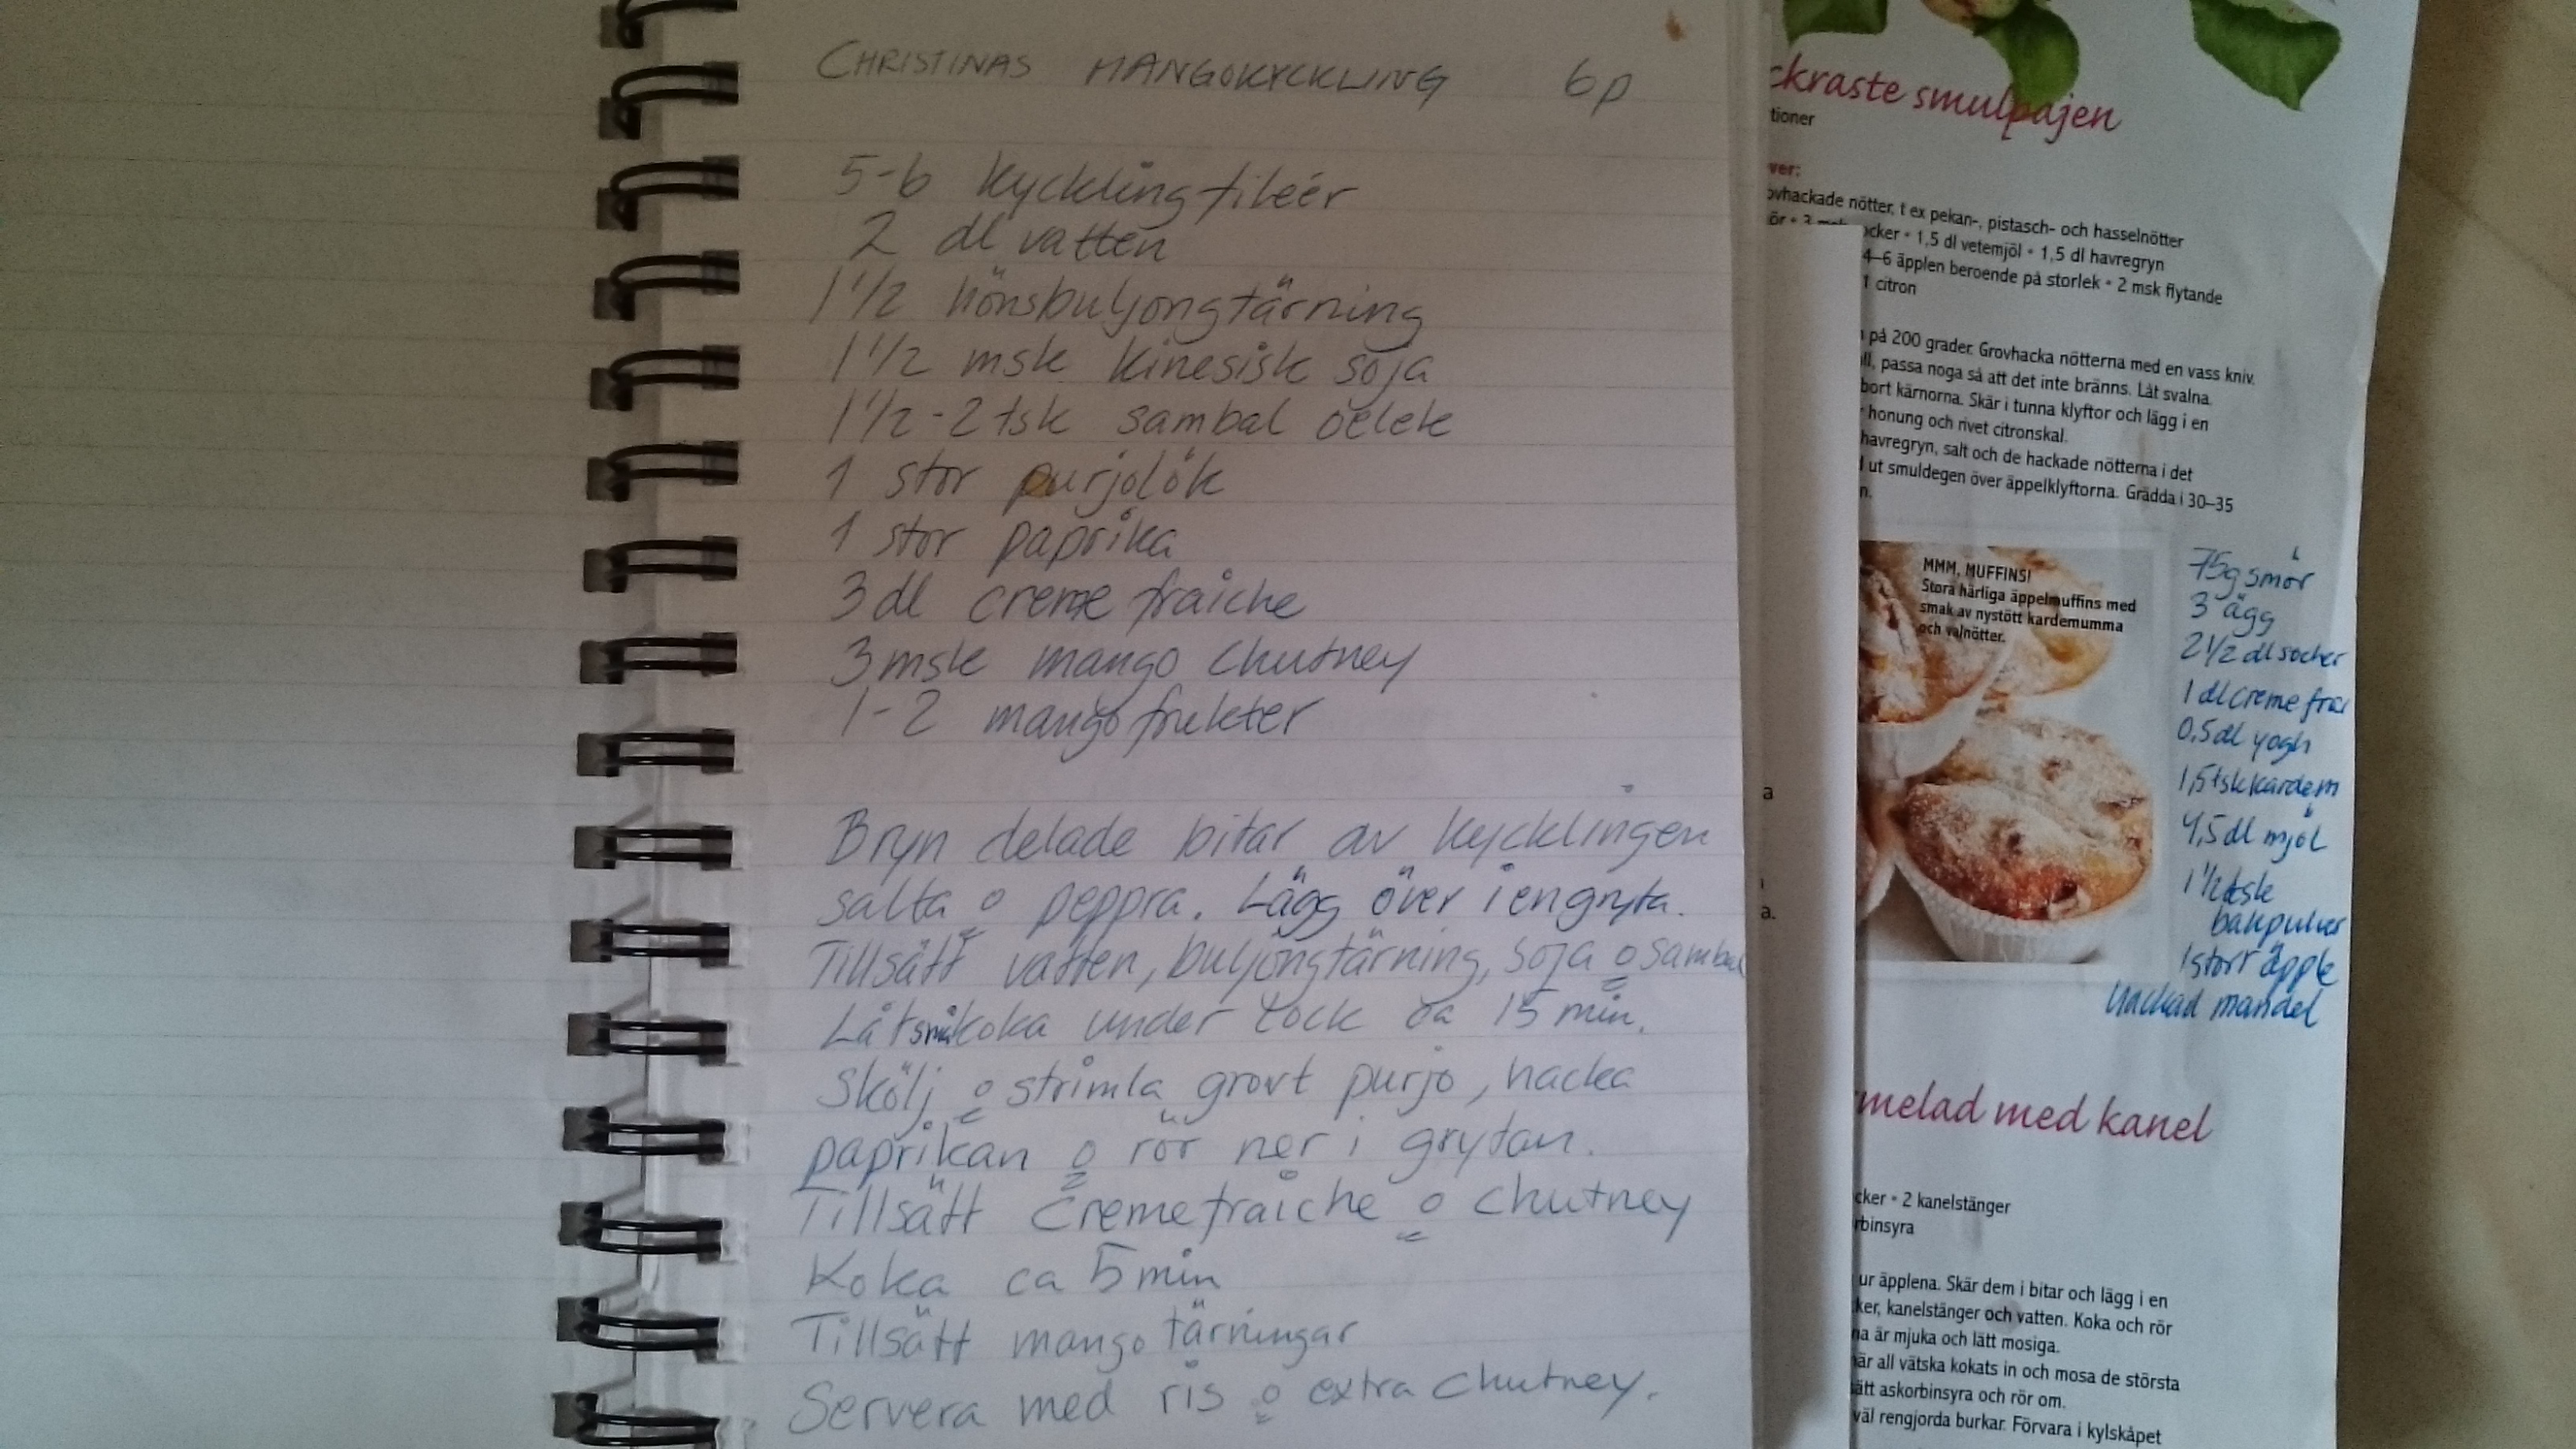 CHRISTINAS MANGOKYCKLING 6p
5-6 kycklingfiléer
2 dl vatten
1 1/2 hönsbuljongtärning
1 1/2 msk kinesisk soja
1 1/2-2 tsk sambal oelek
1 stor purjolök
1 stor paprika
3 dl creme fraiche
3 msk mango chutney
1-2 mangofrukter
Bryn delade bitar av kycklingen
salta o peppra. Lägg över i en gryta.
Tillsätt vatten, buljongtärning, soja o sambal
Låt småkoka under lock ca 15 min.
Skölj o strimla grovt purjo, hacka
paprikan o rör ner i grytan.
Tillsätt Creme fraiche o chutney
Koka ca 5 min
Tillsätt mango tärningar
Servera med ris o extra chutney.
ckraste smulpajen
tioner
ver:
ovhackade nötter, t ex pekan-, pistasch- och hasselnötter
ör • 3 msk ocker • 1,5 dl vetemjöl • 1,5 dl havregryn
4–6 äpplen beroende på storlek • 2 msk flytande
1 citron
på 200 grader. Grovhacka nötterna med en vass kniv.
ll, passa noga så att det inte bränns. Låt svalna.
bort kärnorna. Skär i tunna klyftor och lägg i en
honung och rivet citronskal.
havregryn, salt och de hackade nötterna i det
ut smuldegen över äppelklyftorna. Grädda i 30–35
n.
MMM, MUFFINS!
Stora härliga äppelmuffins med
smak av nystött kardemumma
och valnötter.
75g smör
3 ägg
2 1/2 dl socker
1 dl creme frai
0,5 dl yogh
1,5 tsk kardem
4,5 dl mjöl
1 1/2 tsk
bakpulver
1 stort äpple
hackad mandel
a
a.
melad med kanel
cker • 2 kanelstänger
rbinsyra
ur äpplena. Skär dem i bitar och lägg i en
ker, kanelstänger och vatten. Koka och rör
na är mjuka och lätt mosiga.
när all vätska kokats in och mosa de största
ätt askorbinsyra och rör om.
väl rengjorda burkar. Förvara i kylskåpet